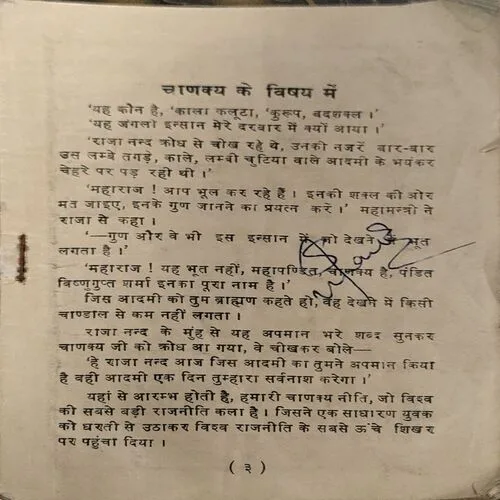 चाणक्य के विषय में
'यह कौन है, 'काला कलूटा, 'कुरूप, बदशक्ल ।'
'यह जंगली इन्सान मेरे दरबार में क्यों आया ।'
'राजा नन्द क्रोध से चीख रहे थे, उनकी नजरें बार-बार
उस लम्बे तगड़े, काले, लम्बी चुटिया वाले आदमी के भयंकर
चेहरे पर पड़ रही थी ।'
'महाराज ! आप भूल कर रहे हैं । इनकी शक्ल की ओर
मत जाइए, इनके गुण जानने का प्रयत्न करें ।' महामन्त्री ने
राजा से कहा ।
'—गुण और वे भी इस इन्सान में जो देखने में भूत
लगता है ।'
'महाराज ! यह भूत नहीं, महापण्डित, चाणक्य है, पंडित
विष्णुगुप्त शर्मा इनका पूरा नाम है ।'
जिस आदमी को तुम ब्राह्मण कहते हो, वह देखने में किसी
चाण्डाल से कम नहीं लगता ।
राजा नन्द के मुंह से यह अपमान भरे शब्द सुनकर
चाणक्य जी को क्रोध आ गया, वे चीखकर बोले—
'हे राजा नन्द आज जिस आदमी का तुमने अपमान किया
है वही आदमी एक दिन तुम्हारा सर्वनाश करेगा ।'
यहां से आरम्भ होती है, हमारी चाणक्य नीति, जो विश्व
की सबसे बड़ी राजनीति कला है । जिसने एक साधारण युवक
को धरती से उठाकर विश्व राजनीति के सबसे ऊंचे शिखर
पर पहुंचा दिया ।
( ३ )